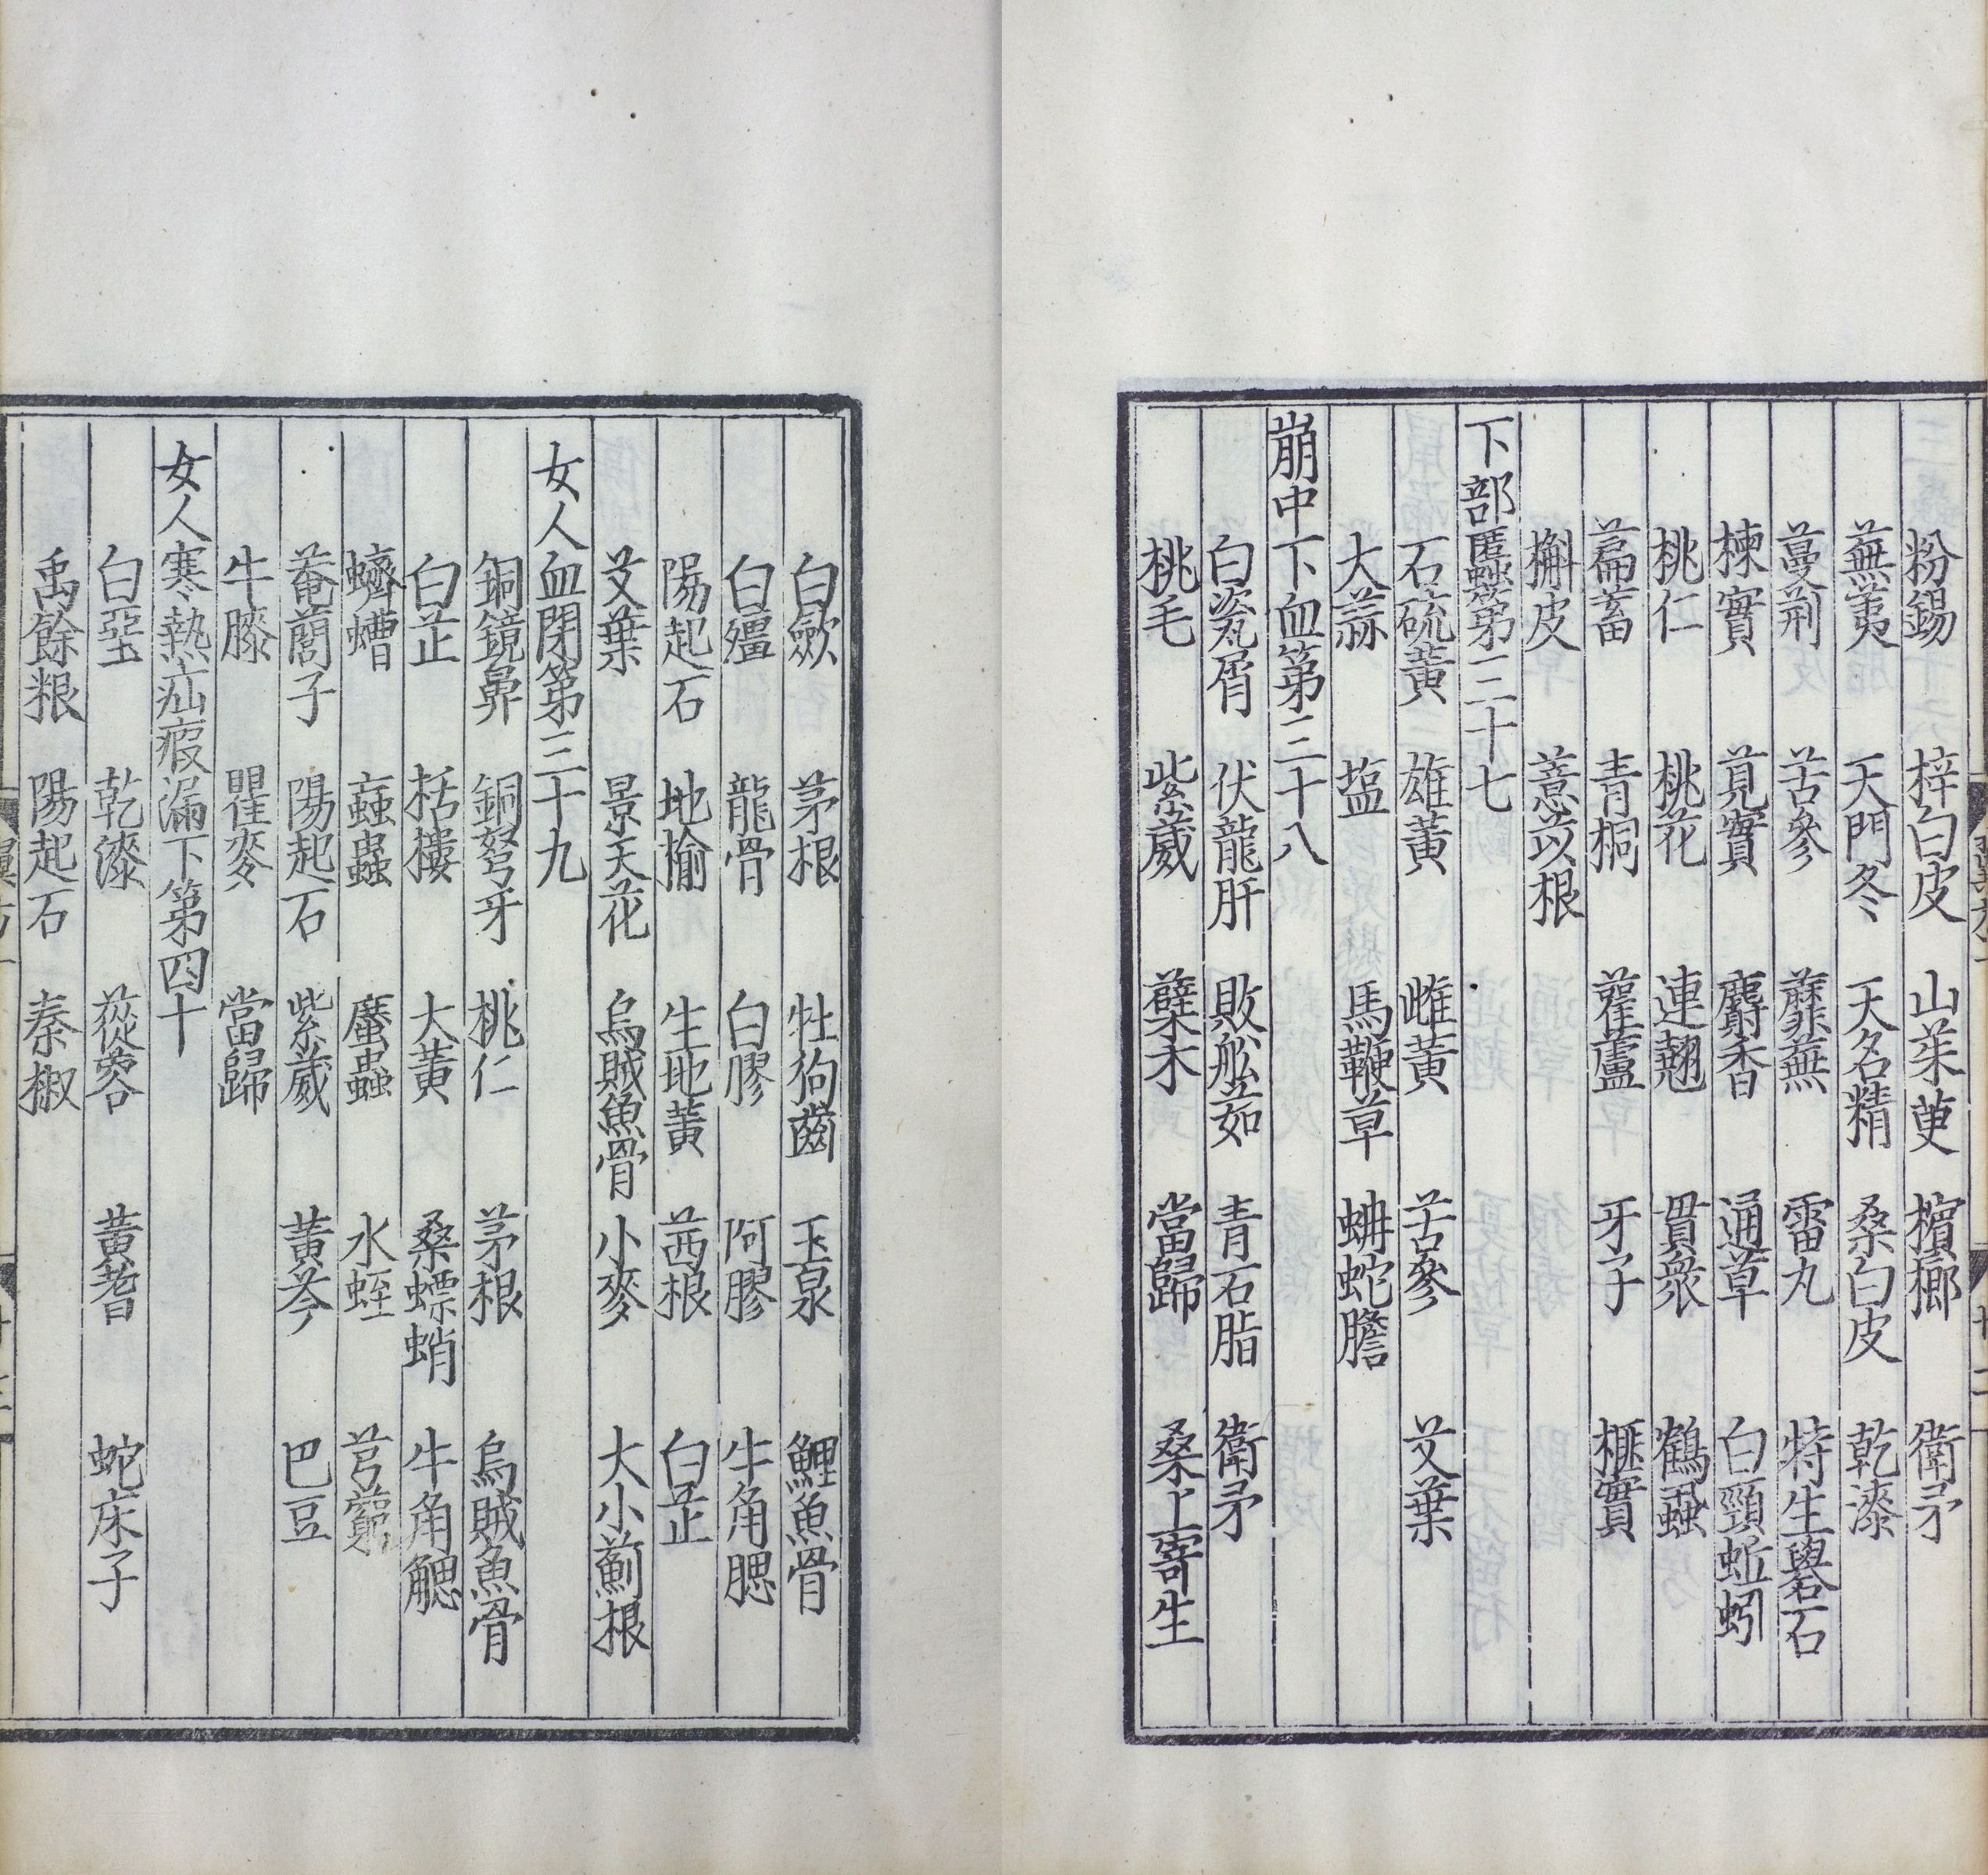 粉錫 梓白皮 山茱萸 檳榔 衛矛
蕪荑 天門冬 天名精 桑白皮 乾漆
蔓荆 苦參 蘼蕪 雷丸 特生礜石
楝實 莧實 麝香 通草 白頸蚯蚓
桃仁 桃花 連翹 貫衆 鶴蝨
萹蓄 青桐 雚蘆 牙子 榧實
槲皮 薏苡根
下部䘌第三十七
石硫黃 雄黃 雌黃 苦參 艾葉
大蒜 塩 馬鞭草 蚺蛇膽
崩中下血第三十八
白瓷屑 伏龍肝 敗舩茹 青石脂 衛矛
桃毛 紫葳 蘗木 當歸 桑上寄生
白歛 茅根 牡狗齒 玉泉 鯉魚骨
白殭 龍骨 白膠 阿膠 牛角腮
陽起石 地榆 生地黃 茜根 白芷
艾葉 景天花 烏賊魚骨 小麥 大小薊根
女人血閉第三十九
銅鏡鼻 銅弩牙 桃仁 茅根 烏賊魚骨
白芷 栝樓 大黃 桑螵蛸 牛角䚡
蠐螬 蝱蟲 䗪蟲 水蛭 芎藭
菴䕡子 陽起石 紫葳 黃芩 巴豆
牛膝 瞿麥 當歸
女人寒熱疝瘕漏下第四十
白堊 乾漆 蓯蓉 黃耆 蛇床子
禹餘粮 陽起石 秦椒